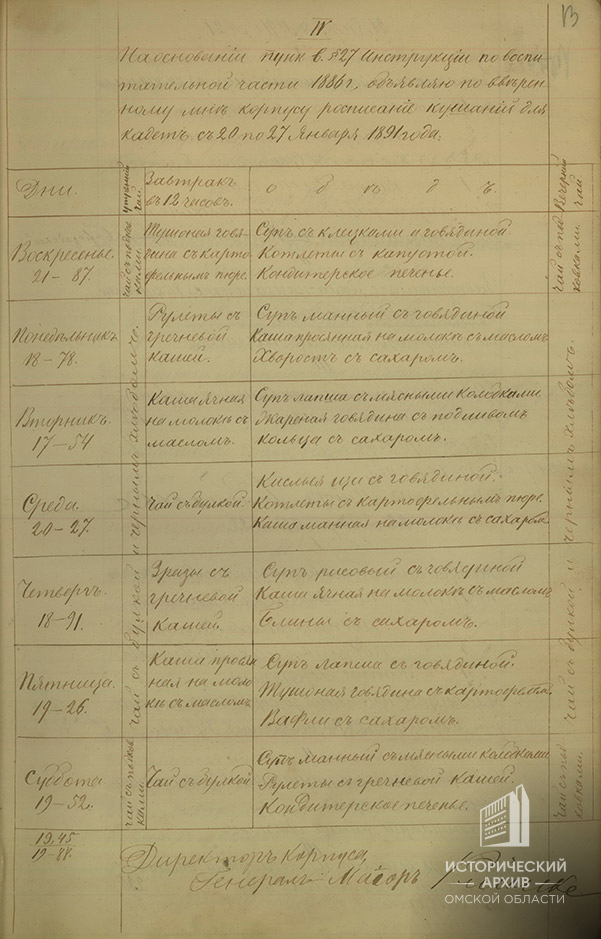 IV
13
На основаніи пунк. в. § 27 Инструкціи по воспи-
тательной части 1886 г., объявляю по ввѣрен-
ному мнѣ корпусу росписаніе кушаній для
кадетъ съ 20 по 27 Января 1891 года:
Дни.
утренній чай.
Завтракъ
въ 12 часовъ.
обѣдъ.
Вечерній чай.
Воскресенье.
21 – 87.
Тушоная говя-
дина съ карто-
фельнымъ пюре.
Супъ съ клецками и говядиной
Котлеты съ капустой.
Кондитерское печенье.
Понедѣльникъ
18 – 78.
Рулеты съ
гречневой
кашей.
Супъ манный съ говядиной
Каша просяная на молокѣ съ масломъ
Хворостъ съ сахаромъ.
Вторникъ.
17 – 54
Каша ячная
на молокѣ съ
масломъ.
Супъ лапша съ мясными колобками
Жареная говядина съ подливомъ
Кольца съ сахаромъ.
Среда.
20 – 27.
Чай съ булкой.
Кислыя щи съ говядиной.
Котлеты съ картофельнымъ пюре.
Каша манная на молокѣ съ сахаром.
Четвергъ.
18 – 91.
Зразы съ
гречневой
кашей.
Супъ рисовый съ говядиной
Каша ячная на молокѣ съ масломъ
Блины съ сахаромъ.
Пятница.
19 – 26.
Каша прося
ная на моло
кѣ съ масломъ
Супъ лапша съ говядиной.
Тушоная говядина съ картофелем.
Вафли съ сахаромъ.
Суббота
19 – 52.
Чай съ булкой.
Супъ манный съ мясными колобками
Рулеты съ гречневой кашей.
Кондитерское печенье.
чай съ булкой и чернымъ хлѣбомъ.
чай съ булкой и чернымъ хлѣбомъ.
19,45
19 – 88.
Директоръ Корпуса,
Генералъ-Маіоръ
ИСТОРИЧЕСКИЙ
АРХИВ
ОМСКОЙ ОБЛАСТИ